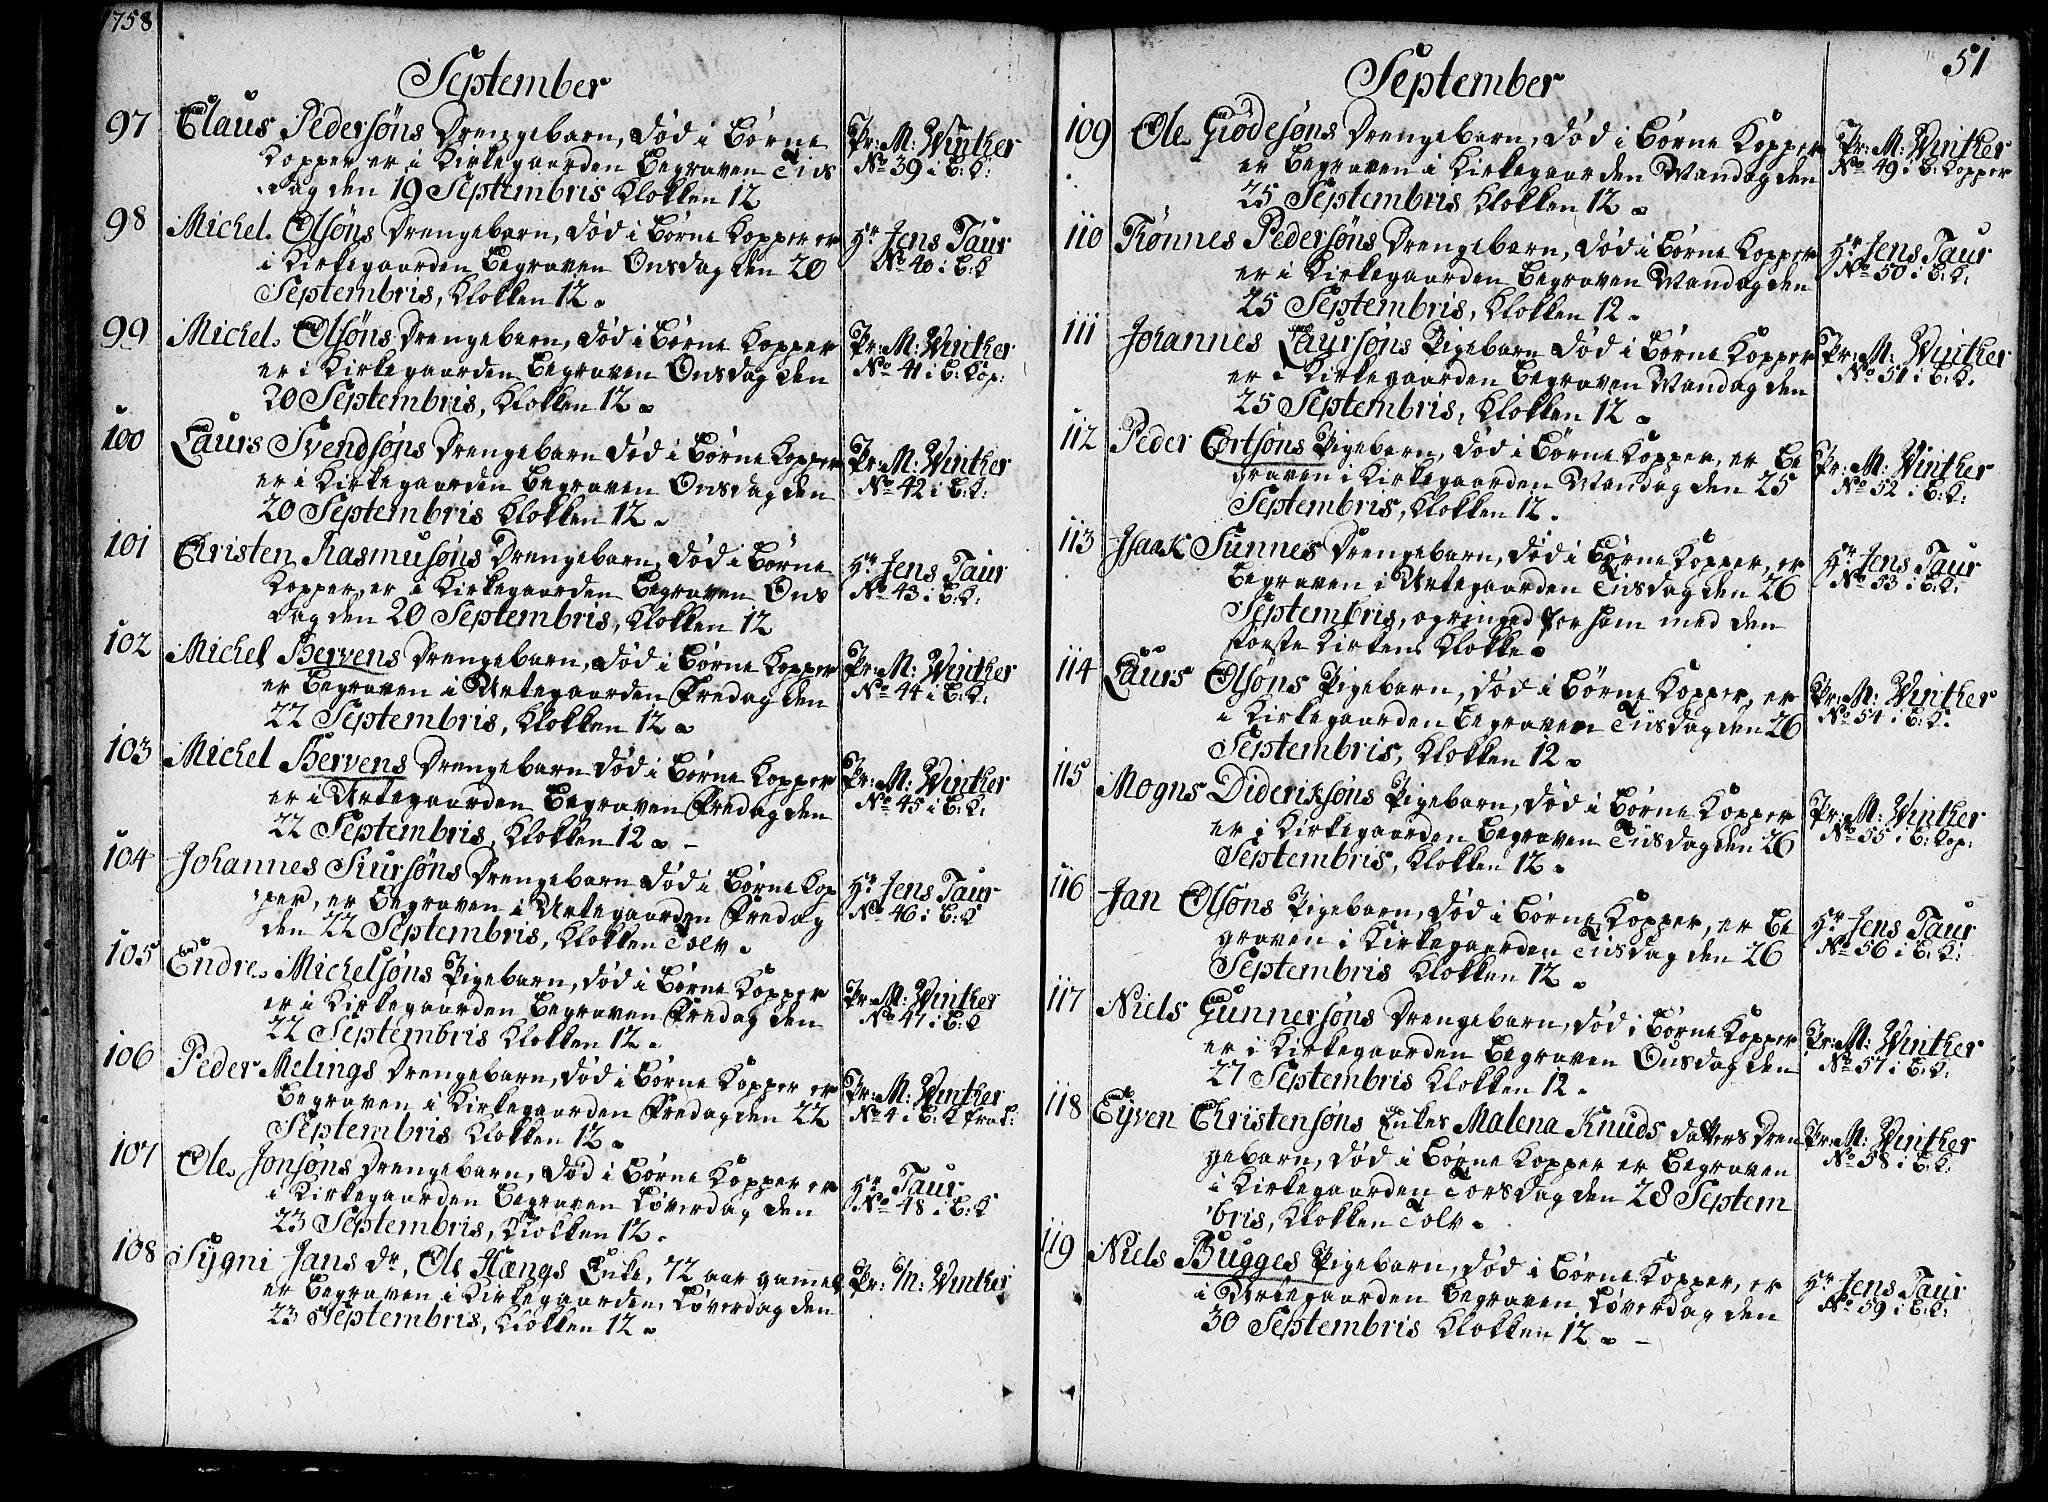 1758
September
97 Claus Pedersøns Drengebarn, død i Børne Pr: M: Vinther
Kopper er i Kirkegaarden Begraven Tiis No 39 i B: K:
dag den 19 Septembris Klokken 12
98 Michel Olsøns Drengebarn, død i Børne Kopper er Hr Jens Taur
i Kirkegaarden Begraven Onsdag den 20 No 40 i B: K
Septembris, Klokken 12.
99 Michel Olsøns Drengebarn, død i Børne Kopper Pr: M: Vinther
er i Kirkegaarden Begraven Onsdag den No 41 i B: Kop:
20 Septembris, Klokken 12.
100 Laurs Svendsøns Drengebarn død i Børne Kopper Pr: M: Vinther
er i Kirkegaarden Begraven Onsdag den No 42 i B: K:
20 Septembris Klokken 12.
101 Christen Rasmusøns Drengebarn, død i Børne Hr Jens Taur
Kopper, er i Kirkegaarden Begraven Ons No 43 i B: K:
dag den 20 Septembris, Klokken 12
102 Michel Bervens Drengebarn, død i Børne Kopper Pr: M: Vinther
er Begraven i Urtegaarden Fredag den No 44 i B: K:
22 Septembris, Klokken 12.
103 Michel Bervens Drengebarn død i Børne Kopper Pr: M: Vinther
er i Urtegaarden Begraven Fredag den No 45 i B: K:
22 Septembris, Klokken 12. -
104 Johannes Siursøns Drengebarn død i Børne Kop Hr Jens Taur
per, er Begraven i Urtegaarden Fredag No 46 i B: K
den 22 Septembris, Klokken Tolv.
105 Endre Michelsøns Pigebarn, død i Børne Kopper Pr: M: Vinther
er i Kirkegaarden Begraven Fredag den No 47 i B: K
22 Septembris Klokken 12.
106 Peder Melings Drengebarn, død i Børne Kopper er Pr: M: Vinther
Begraven i Kirkegaarden Fredag den 22 No 4 i B: K
Septembris Klokken 12.
107 Ole Jonsøns Drengebarn, død i Børne Kopper er Hr Taur
i Kirkegaarden Begraven Løverdag den No 48 i B: K
23 Septembris, Klokken 12.
108 Sygni Jans dr, Ole Hængs Enke, 72 aar gamel Pr: M: Vinther
er Begraven i Kirkegaarden, Løverdag den
23 Septembris, Klokken 12.
51
September
109 Ole Giødesøns Drengebarn, død i Børne Kopper Pr: M: Vinther
er Begraven i Kirkegaarden Mandag den No 49 i B: Kopper
25 Septembris Klokken 12.
110 Tønnes Pedersøns Drengebarn, død i Børne Kopper Hr Jens Taur
er i Kirkegaarden Begraven Mandag den No 50 i B: K:
25 Septembris, Klokken 12.
111 Johannes Laursøns Pigebarn død i Børne Kopper Pr: M: Vinther
er i Kirkegaarden Begraven Mandag den No 51 i B: K.
25 Septembris, Klokken 12.
112 Peder Cortsøns Pigebarn, død i Børne Kopper, er Be Pr: M: Vinther
graven i Kirkegaarden Mandag den 25 No 52 i B: K:
Septembris, Klokken 12.
113 Isaak Sunnes Drengebarn, død i Børne Kopper, er Hr Jens Taur
Begraven i Urtegaarden Tiisdag den 26 No 53 i B: K:
Septembris, og ringed for ham med den
største Kirkens Klokke.
114 Laurs Olsøns Pigebarn, død i Børne Kopper, er Pr: M: Vinther
i Kirkegaarden Begraven Tiisdag den 26 No 54 i B: K.
Septembris, Klokken 12.
115 Mogns Dideriksøns Pigebarn, død i Børne Kopper Pr: M: Vinther
er i Kirkegaarden Begraven Tiisdag den 26 No 55 i B: Kop:
Septembris, Klokken 12.
116 Jan Olsøns Pigebarn, død i Børne Kopper, er Be Hr Jens Taur
graven i Kirkegaarden Tiisdag den 26 No 56 i B: K:
Septembris Klokken 12.
117 Niels Gunnersøns Drengebarn, død i Børne Kopper Pr: M: Vinther
er i Kirkegaarden Begraven Onsdag den No 57 i B: K:
27 Septembris Klokken 12.
118 Eyven Christensøns Enkes Malena Knuds datters Dren Pr: M: Vinther
gebarn, død i Børne Kopper er Begraven No 58 i B: K:
i Kirkegaarden Torsdag den 28 Septem
bris, Klokken Tolv.
119 Niels Bugges Pigebarn, død i Børne Kopper, er Hr Jens Taur
i Urtegaarden Begraven Løverdag den No 59 i B: K:
30 Septembris Klokken 12. -